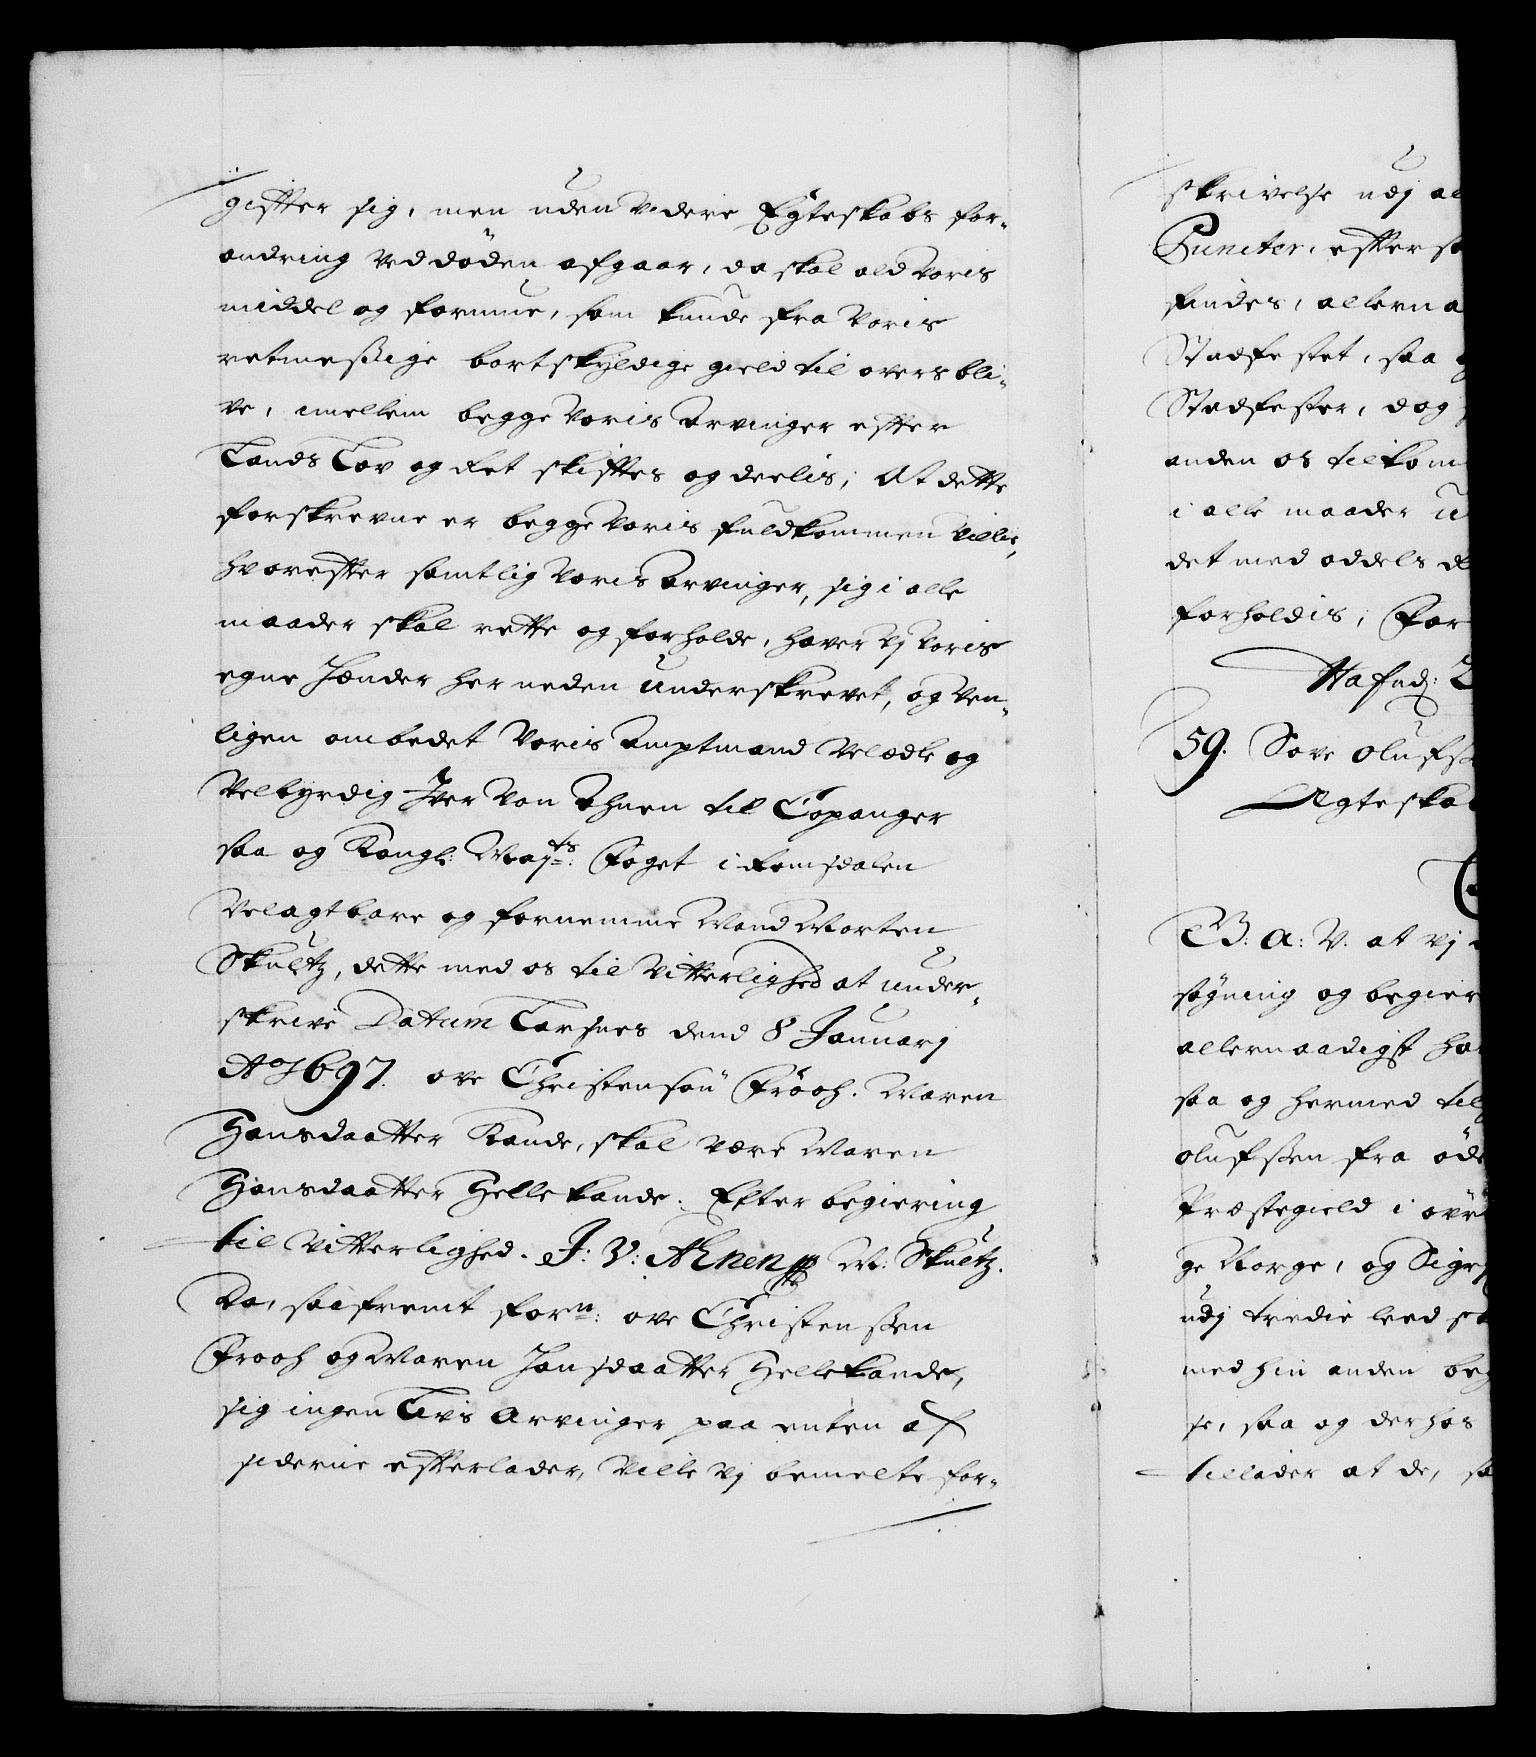 gifter sig, men uden videre Egteskabs for-
andring ved döden afgaar, da skal ald voris
middel og formue, som kunde fra voris
retmessige bortskyldige gield til overs bli-
ve, imellem begge voris Arvinger efter
Lands Lov og Ret skiftes og deelis; At dette
forskrevne er begge voris fuldkommen villie,
hvorefter samtlig voris arvinger, sig i alle
maader skal rette og forholde, haver vj voris
egne Hænder her neden underskrevet, og ven-
ligen ombedet voris Amptmand Velædle og
Velbyrdig Iver von Ahnen til Copanger
saa og Kongl: Mayts: Foget i Romsdalen
Velagtbare og fornemme Mand Morten
Skultz, dette med os til Vitterlighed at under-
skrive Datum Larsnes dend 8 Januarj
Ao 1697. ove Christensön Frööh. Maren
Hansdaatter Kande, skal være Maren
Hansdaatter Hellekande. Efter begiering
til Vitterlighed. J: V: Ahnen M: Skultz.
Da, saafremt forn: ove Christenssen
Frooh og Maren Hansdaatter Hellekande,
sig ingen Livs Arvinger paa enten af
siderne efterlader, Ville vj bemelte for-
skrivelse udj al
Puncter, efter so
findes, allerna
Stadfestet, saa
Stadfester, dog
anden os tilkom
i alle maader u
det med oddels
forholdis; For
Hafnd: 2
59. Sove olufs
Ægteska
G: A: V. at vj
søgning og begier
allernaadigst ha
saa og hermed til
olufssen fra öde
Præstegield i
ge Norge, og Sigr
udj tredie leed
med hin anden beg
se, saa og derhos
tillader at de, sa